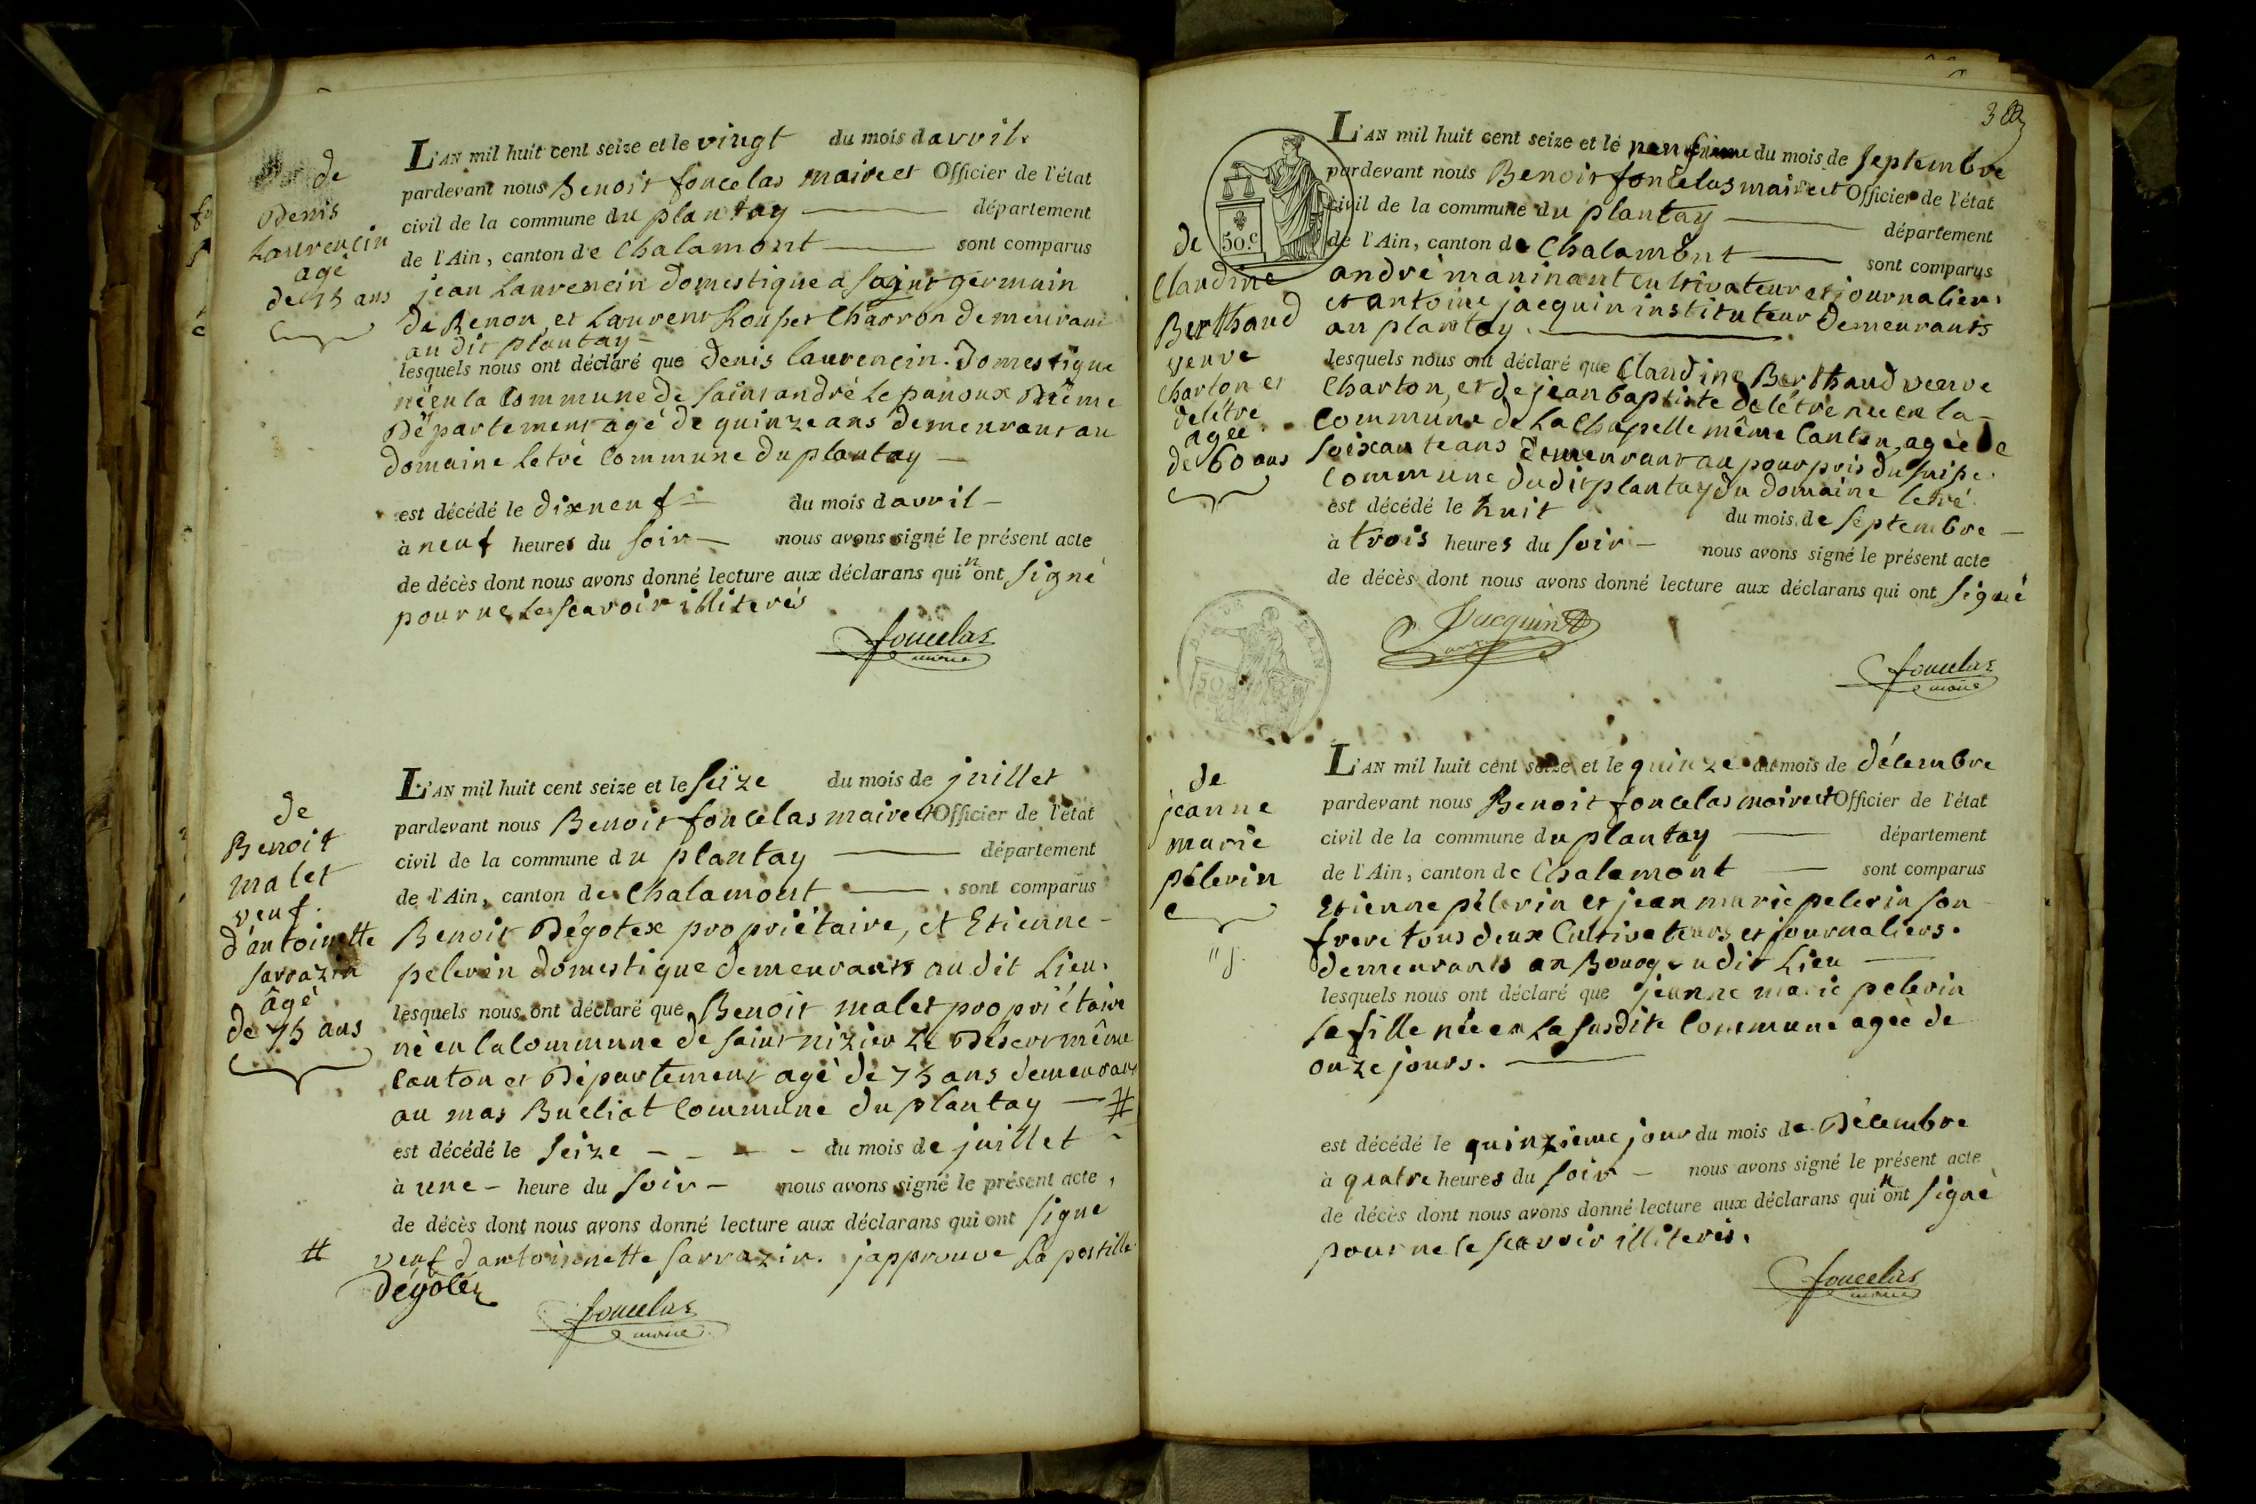 de
Denis
Laurencin
agé
de 15 ans
L'AN mil huit cent seize et le vingt du mois davril.
pardevant nous Benoit foncelas maire et Officier de l'état
civil de la commune du plantay département
de l'Ain, canton de Chalamont sont comparus
jean Laurencin domestique a saint germain
de Renon, et Laurent Charron demeurant
au dit plantay
lesquels nous ont déclaré que denis laurencin domestique
né en la Commune de saint andré le panoux même
Département agé de quinze ans demeurant au
domaine Letré Commune du plantay
est décédé le dixneuf du mois davril
à neuf heures du soir nous avons signé le présent acte
de décès dont nous avons donné lecture aux déclarans qui n'ont signé
pour ne le scavoir illiterés
foncelas
maire
de
Benoit
malet
veuf
d'antoinette
sarrazin
âgé
de 75 ans
L'AN mil huit cent seize et le seize du mois de juillet
pardevant nous Benoit foncelas maire et Officier de l'état
civil de la commune du plantay département
de l'Ain, canton de Chalamont sont comparus
Benoit Dégotex propriétaire, et Etienne
pelerin domestique demeurants au dit Lieu.
lesquels nous ont déclaré que Benoit malet propriétaire
né en la Commune de saint nizier Le Désert même
Canton et Département agé de 75 ans demeurant
au mas Bucliat Commune du plantay #
est décédé le seize du mois de juillet
à une heure du soir nous avons signé le présent acte
de décès dont nous avons donné lecture aux déclarans qui ont signé
# veuf d'antoinette sarrazin. japprouve La postille
Dégotex
foncelas
maire
38
50.c
de
Claudine
Berthaud
veuve
Charton et
deletre
agée
de 60 ans
L'AN mil huit cent seize et le neufvieme du mois de septembre
pardevant nous Benoit foncelas maire et Officier de l'état
civil de la commune du plantay département
de l'Ain, canton de Chalamont sont comparus
andré maninant cultivateur et journalier
et antoine jacquin instituteur demeurants
au plantay.
lesquels nous ont déclaré que Claudine Berthaud veuve
Charton, et de jean baptiste deletre née en la
Commune de La Chapelle même Canton, agée de
soixante ans demeurant au pourpris du
Commune dudit plantay du domaine letré
est décédé le huit du mois de septembre
à trois heures du soir nous avons signé le présent acte
de décès dont nous avons donné lecture aux déclarans qui ont signé
Jacquin
foncelas
maire
de
jeanne
marie
pélerin
L'AN mil huit cent seize et le quinze du mois de décembre
pardevant nous Benoit foncelas maire et Officier de l'état
civil de la commune du plantay département
de l'Ain, canton de Chalamont sont comparus
Etienne pélerin et jean marie pelerin son
frere tous deux Cultivateurs et journaliers.
demeurants au Bourg du dit Lieu
lesquels nous ont déclaré que jeanne marie pelerin
sa fille née en La susdite Commune agée de
onze jours.
est décédé le quinzieme jour du mois de Décembre
à quatre heures du soir nous avons signé le présent acte
de décès dont nous avons donné lecture aux déclarans qui n'ont signé
pour ne le scavoir illiterés.
foncelas
maire